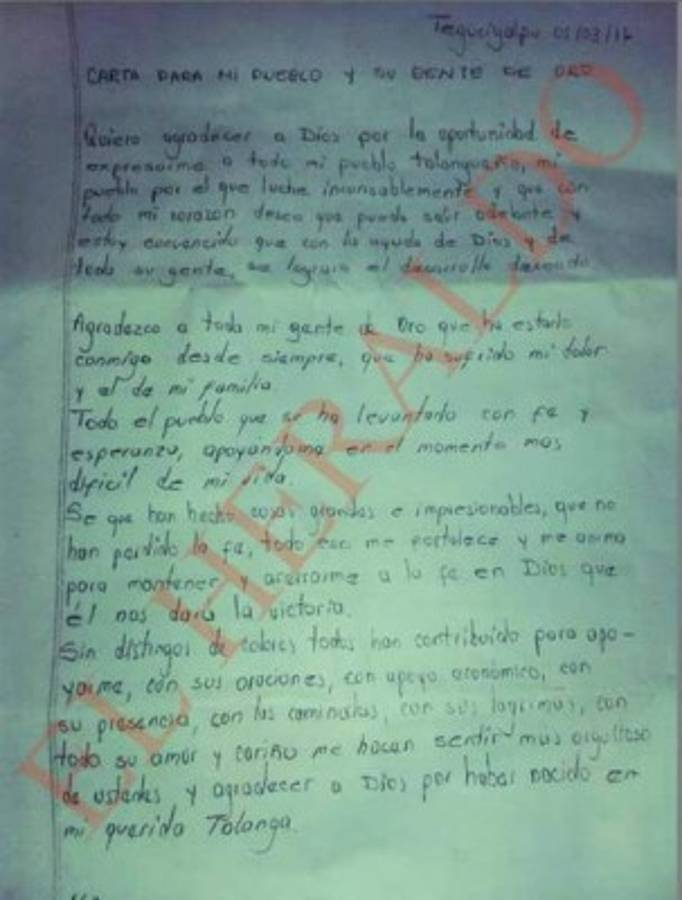 Tegucigalpa 01/03/16
CARTA PARA MI PUEBLO Y SU GENTE DE ORO
Quiero agradecer a Dios por la oportunidad de
expresarme a todo mi pueblo talangueño, mi
pueblo por el que luche incansablemente y que con
todo mi corazon deseo que pueda salir adelante y
estoy convencido que con la ayuda de Dios y de
toda su gente, se lograra el desarrollo deseado
Agradezco a toda mi gente de Oro que ha estado
conmigo desde siempre, que ha sufrido mi dolor
y el de mi familia.
Todo el pueblo que se ha levantado con fe y
esperanza, apoyandome en el momento mas
dificil de mi vida.
Se que han hecho cosas grandes e impresionables, que no
han perdido la fe, todo eso me fortalece y me anima
para mantener y aferrarme a la fe en Dios que
él nos dará la victoria.
Sin distingos de colores todos han contribuido para apo-
yarme, con sus oraciones, con apoyo economico, con
su presencia, con las caminatas, con sus lagrimas, con
todo su amor y cariño me hacen sentir mas orgulloso
de ustedes y agradecer a Dios por haber nacido en
mi querido Talanga.
EL HERALDO